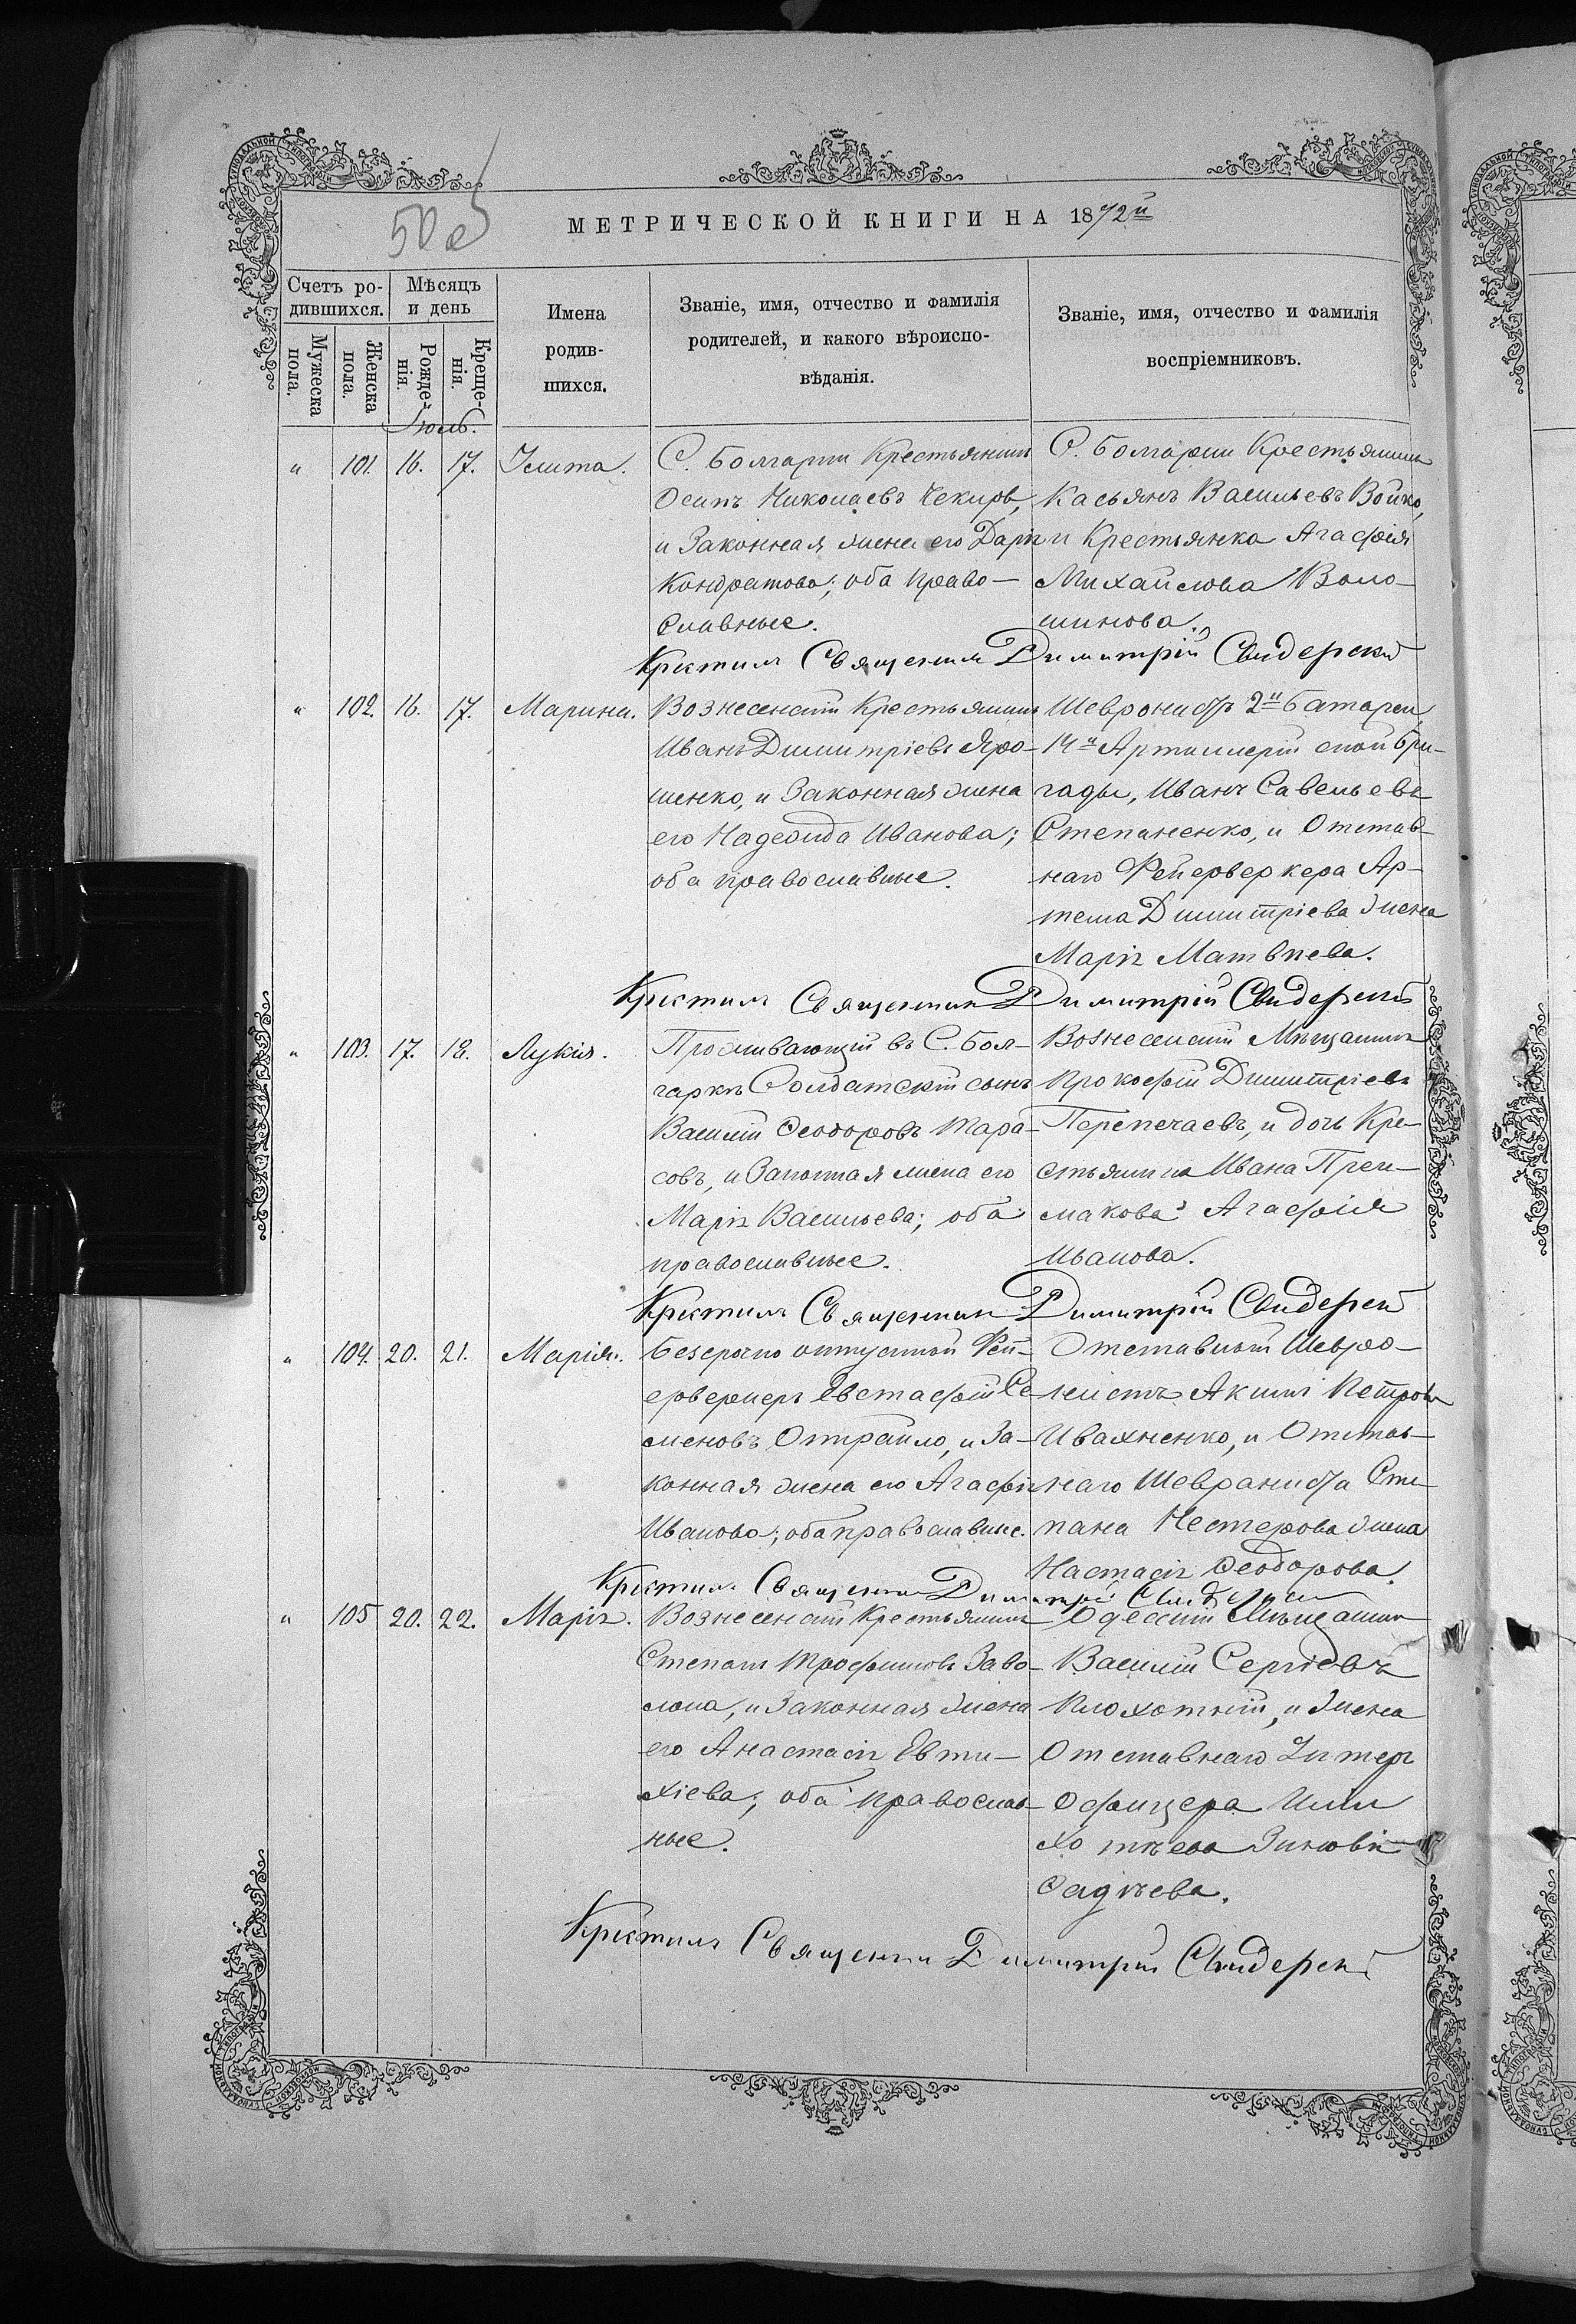 50 об
МЕТРИЧЕСКОЙ КНИГИ НА 1872й
Счетъ ро-
дившихся.
Мѣсяцъ
и день
Мужеска
пола.
Женска
пола.
Рожде-
нія.
Креще-
нія.
Имена
родив-
шихся.
Званіе, имя, отчество и фамилія
родителей, и какого вѣроиспо-
вѣданія.
Званіе, имя, отчество и фамилія
воспріемниковъ.
Іюль.
" 101. 16. 17.
С. Болгарки Крестьянинъ
Осипъ Николаевъ
и Законная жена его Дарія
Кондратова; оба право-
славные.
С. Болгарки Крестьянинъ
Касьянъ Васильевъ Бойко,
и Крестьянка Агафія
Михайлова Воло-
шинова.
Крестилъ Священникъ Димитрій Свидерскій
" 102. 16. 17. Марина.
Вознесенскій Крестьянинъ
Иванъ Димитріевъ Яро-
шенко, и Законная жена
его Надежда Иванова;
оба православные.
Шевронистъ 2й Батареи
14й Артиллерійской бри-
гады, Иванъ Савельевъ
Степаненко, и Отстав-
наго Фейерверкера Ар-
тема Димитріева жена
Марія Матвѣева.
Крестилъ Священникъ Димитрій Свидерскій
" 103. 17. 18. Лукія.
Проживающій въ С. Бол-
гаркѣ Солдатскій сынъ
Василій Ѳеодоровъ Тара-
совъ, и Законная жена его
Марія Васильева; оба
православные.
Вознесенскій Мѣщанинъ
Прокофій Димитріевъ
Перепечаевъ, и дочь Кре-
стьянина Ивана
Агафія
Иванова.
Крестилъ Священникъ Димитрій Свидерскій
" 104. 20. 21. Марія.
Безсрочно отпускной Фей-
ерверкеръ Евстафій Се-
меновъ и За-
конная жена его Агафія
Иванова; оба православные.
Отставный Шевро-
нистъ Акимъ Петровъ
Ивахненко, и Отстав-
наго Шеврониста Сте-
пана Нестерова жена
Настасія Ѳеодорова.
Крестилъ Священникъ Димитрій Свидерскій
" 105 20. 22. Марія.
Вознесенскій Крестьянинъ
Степанъ Трофимовъ
и Законная жена
его Анастасія Евти-
хіева; оба православ-
ные.
Одесскій Мѣщанинъ
Василій Сергіевъ
Плохотній, и жена
Отставнаго Унтеръ
Офицера
Зиновія
Крестилъ Священникъ Димитрій Свидерскій